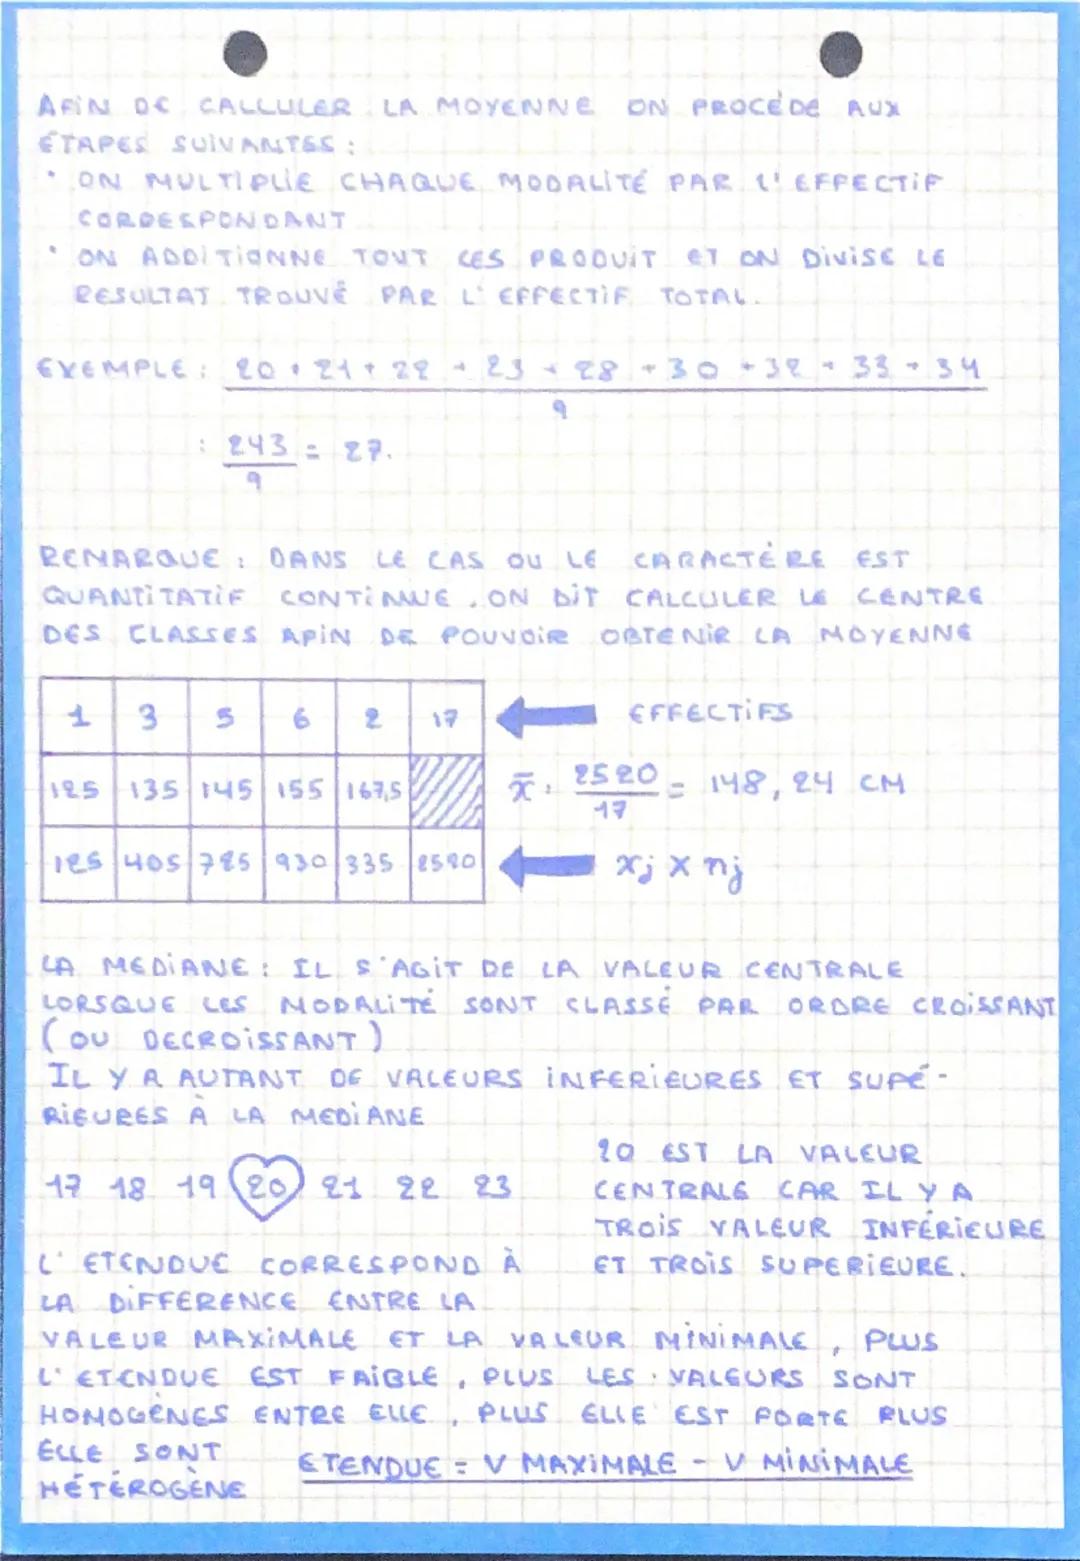 AFIN DE CALCULER LA MOYENNE ON PROCÉDE AUX
ÉTAPES SUIVANTES :
• ON MULTIPLIE CHAQUE MODALITÉ PAR L'EFFECTIF
CORRESPONDANT
• ON ADDITIONNE TOUT CES PRODUIT ET ON DIVISE LE
RESULTAT TROUVÉ PAR L'EFFECTIF TOTAL.
EXEMPLE : 20 + 21 + 22 + 23 + 28 + 30 + 32 + 33 + 34
9
: 243 = 27.
9
REMARQUE : DANS LE CAS OU LE CARACTÉRE EST
QUANTITATIF CONTINUE, ON DIT CALCULER LE CENTRE
DES CLASSES AFIN DE POUVOIR OBTENIR LA MOYENNE
1 3 5 6 2 17 EFFECTIFS
125 135 145 155 167,5 x̄ : 2520 = 148,24 CM
17
125 405 725 930 335 2520 xj x nj
LA MEDIANE : IL S'AGIT DE LA VALEUR CENTRALE
LORSQUE LES MODALITÉ SONT CLASSÉ PAR ORDRE CROISSANT
(OU DECROISSANT)
IL Y A AUTANT DE VALEURS INFERIEURES ET SUPÉ-
RIEURES À LA MEDIANE
17 18 19 20 21 22 23
20 EST LA VALEUR
CENTRALE CAR IL Y A
TROIS VALEUR INFÉRIEURE
ET TROIS SUPERIEURE.
L'ETENDUE CORRESPOND À
LA DIFFERENCE ENTRE LA
VALEUR MAXIMALE ET LA VALEUR MINIMALE, PLUS
L'ETENDUE EST FAIBLE, PLUS LES VALEURS SONT
HOMOGÈNES ENTRE ELLE, PLUS ELLE EST FORTE PLUS
ELLE SONT
HÉTÉROGÈNE
ETENDUE = V MAXIMALE - V MINIMALE